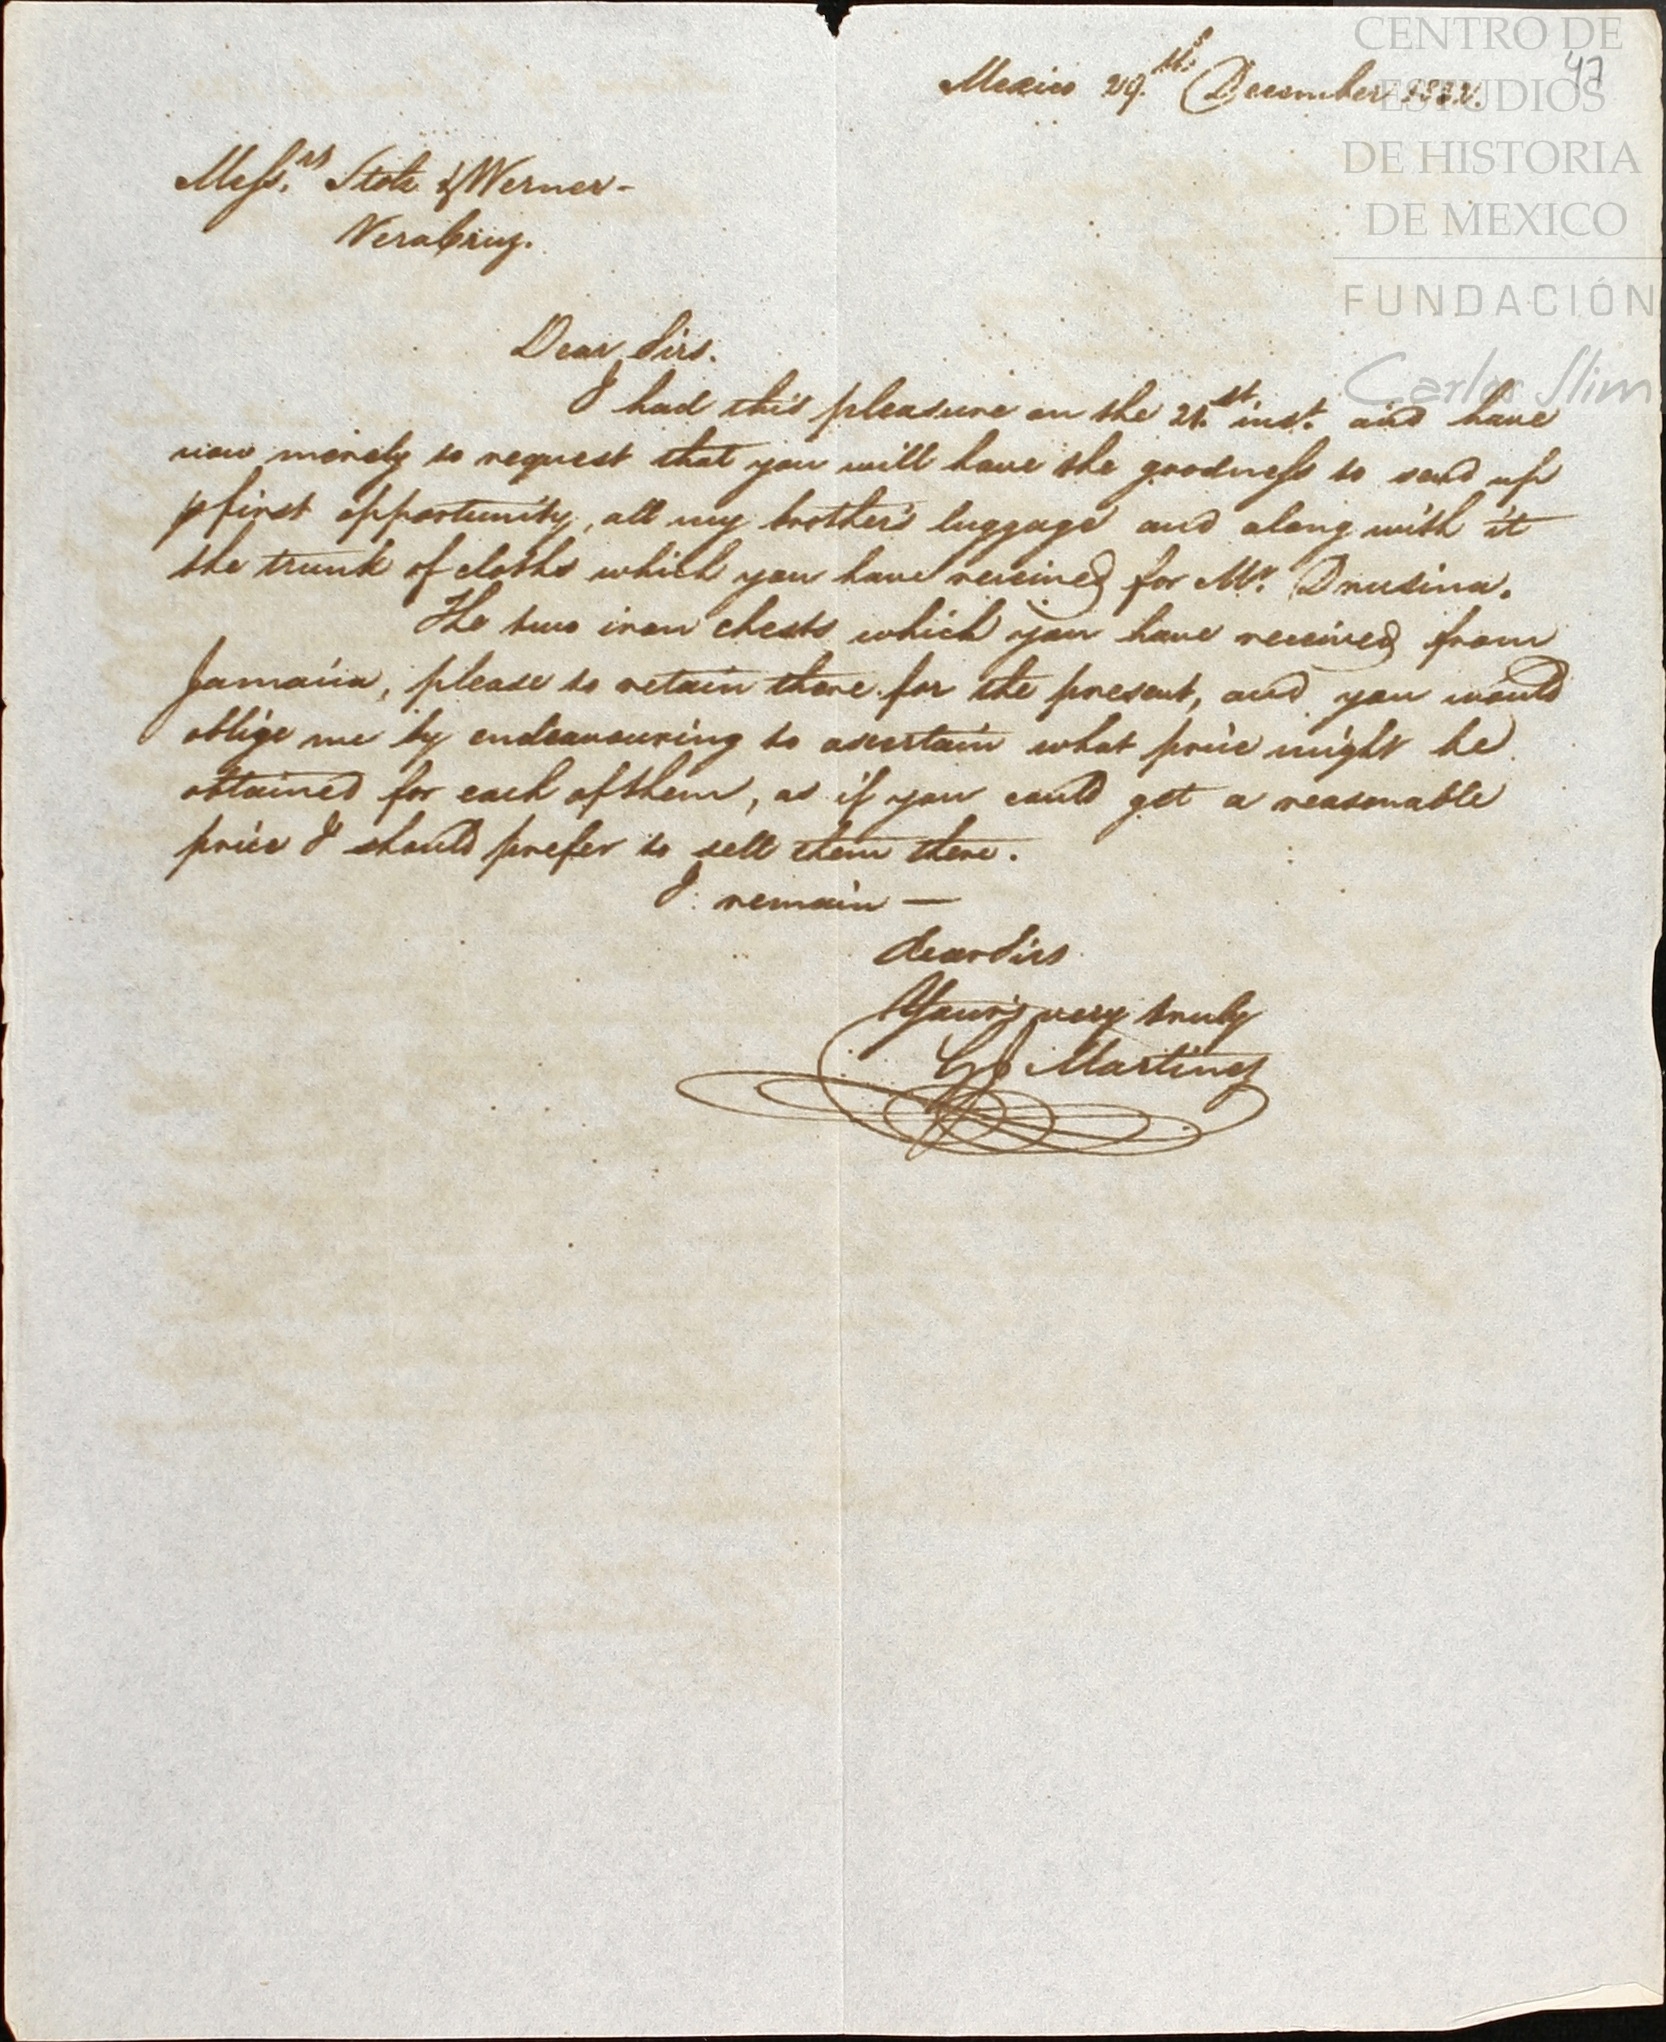 CENTRO DE
ESTUDIOS
DE HISTORIA
DE MEXICO
FUNDACIÓN
Carlos Slim
47
Mexico 29.th December
Mess.rs Stolz & Werner-
VeraCruz.
Dear Sirs.
I had this pleasure on the 21.st inst. and have
now merely to request that you will have the goodness to send up
p first opportunity, all my brother's luggage and along with it
the trunk of cloths which you have received for Mr. Drusina.
The two iron chests which you have received from
Jamaica, please to retain there for the present, and you would
oblige me by endeavouring to ascertain what price might be
obtained for each of them, as if you could get a reasonable
price I should prefer to sell them there.
I remain —
dear Sirs
Your's very truly
Martinez